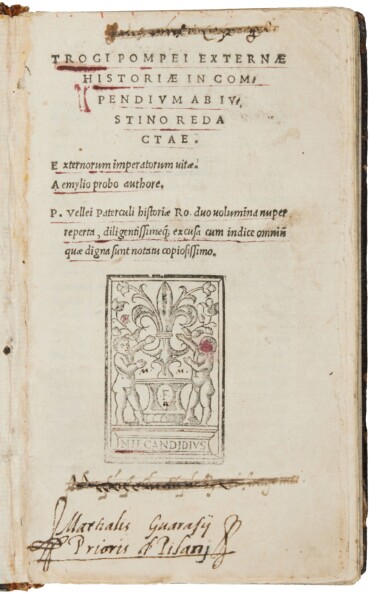 TROGI POMPEI EXTERNÆ
HISTORIÆ IN COM/
PENDIVM AB IV/
STINO REDA
CTAE.
Externorum imperatorum uitæ.
Aemylio probo authore.
P. Vellei Paterculi historiæ Ro. duo uolumina nuper
reperta, diligentissimeq; excusa cum indice omniũ
quæ digna sunt notatu copiosissimo.
F
NIL CANDIDIVS
Martialis Guarasij
Prioris